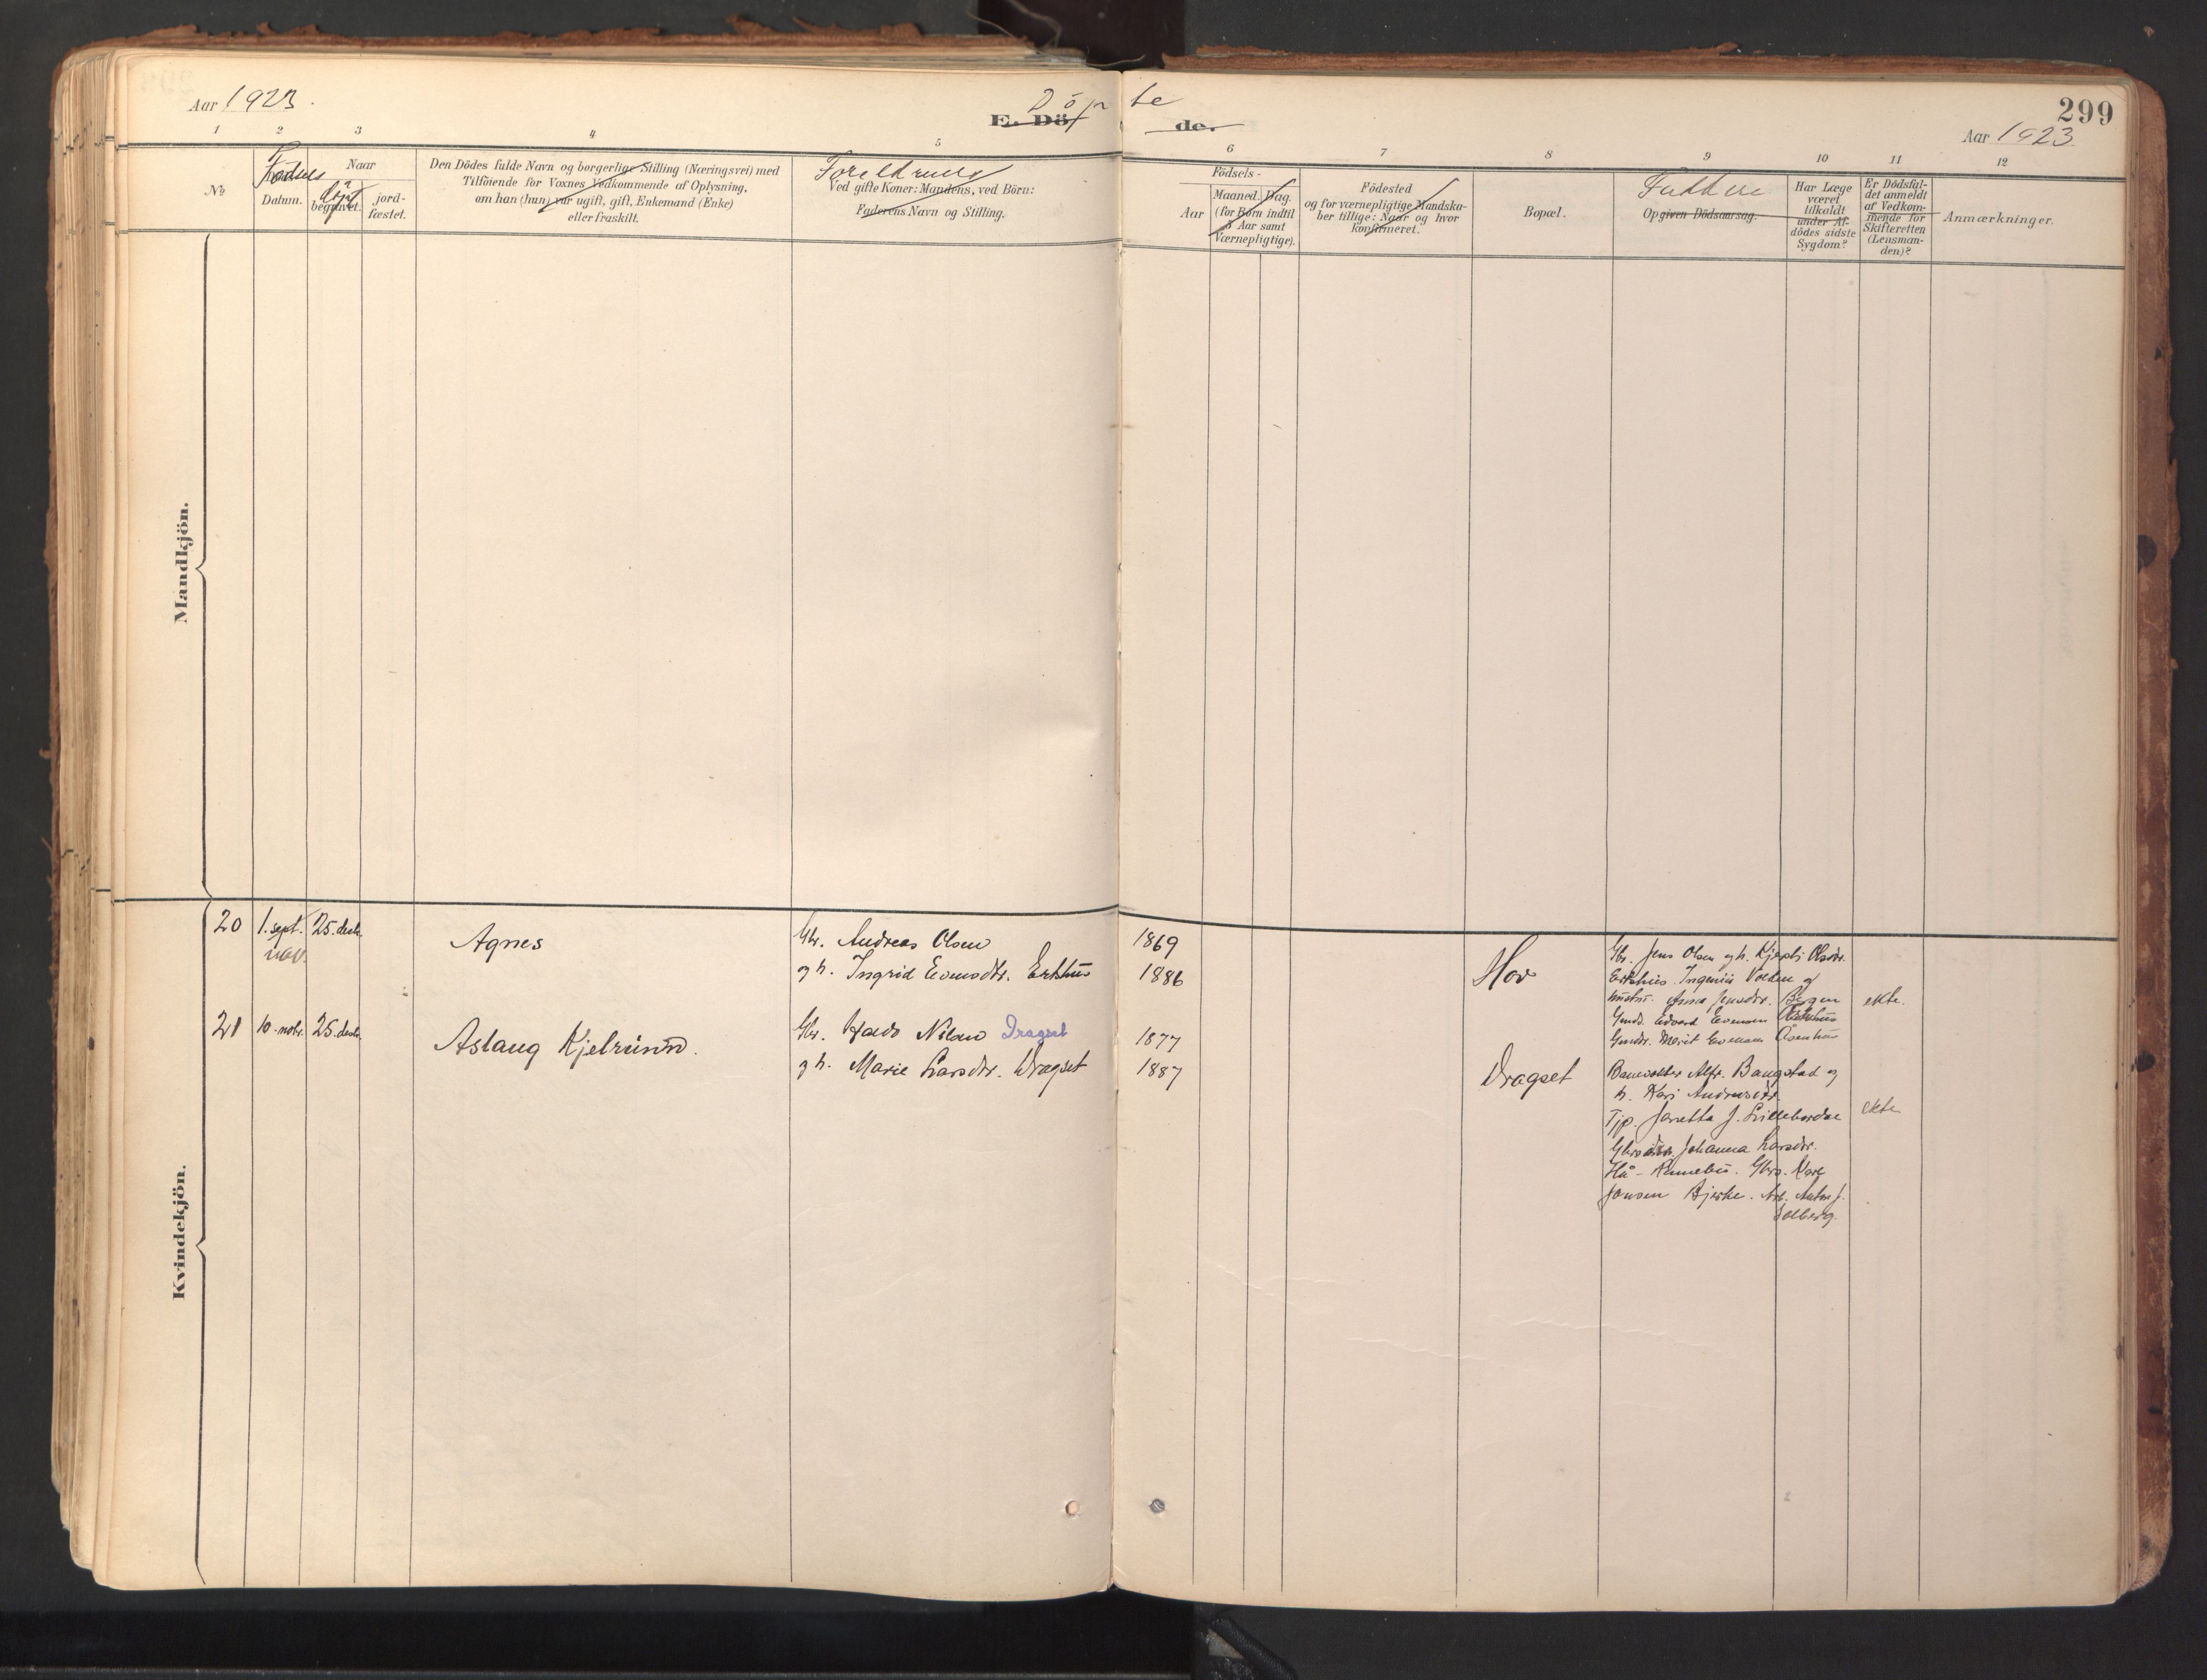 Aar 1923.
Döpte
E. Döde.
299
Aar 1923
1 2 3 4 5 6 7 8 9 10 11 12
No
Fødsels
Datum.
Naar
døpt
begravet.
jord-
fæstet.
Den Dödes fulde Navn og borgerlige Stilling (Næringsvei) med
Tilföiende for Voxnes Vedkommende af Oplysning,
om han (hun) var ugift, gift, Enkemand (Enke)
eller fraskilt.
Foreldrenes
Ved gifte Koner: Mandens, ved Börn:
Faderens Navn og Stilling.
Födsels-
Aar
Maaned. Dag.
(for Börn indtil
5 Aar samt
Værnepligtige).
Födested
og for værnepligtige Mandska-
ber tillige: Naar og hvor
konfirmeret.
Bopæl.
Faddere
Opgiven Dödsaarsag.
Har Læge
været
tilkaldt
under Af-
dödes sidste
Sygdom?
Er Dödsfal-
det anmeldt
af Vedkom-
mende for
Skifteretten
(Lensman-
den)?
Anmærkninger.
Mandkjön.
Kvindekjön.
20 1. sept. 25. desbr.
nov.
Agnes
Gbr. Andreas Olsen
og h. Ingrid Evensdtr. Erkhus
1869
1886
Hov
Gbr. Jens Olsen og h. Kjersti Olsdtr.
Erkhus. Volden og
Anna Jensdtr. Bergen
Edvard Evensen
Marit Evensen
ekte.
21 10. novbr. 25. desbr.
Aslaug Kjelrunn.
Gbr. Nilsen Dragset
og h. Marie Larsdtr. Dragset
1877
1887
Dragset
Banevokter Alfr. Bangstad og
h. Kari Andreasdtr.
Tjp. Janetta J. Lillebordal
Johanna Larsdtr.
Gbrs.
Jonsen Bjerke. Arb. Anton J.
Solberg.
ekte